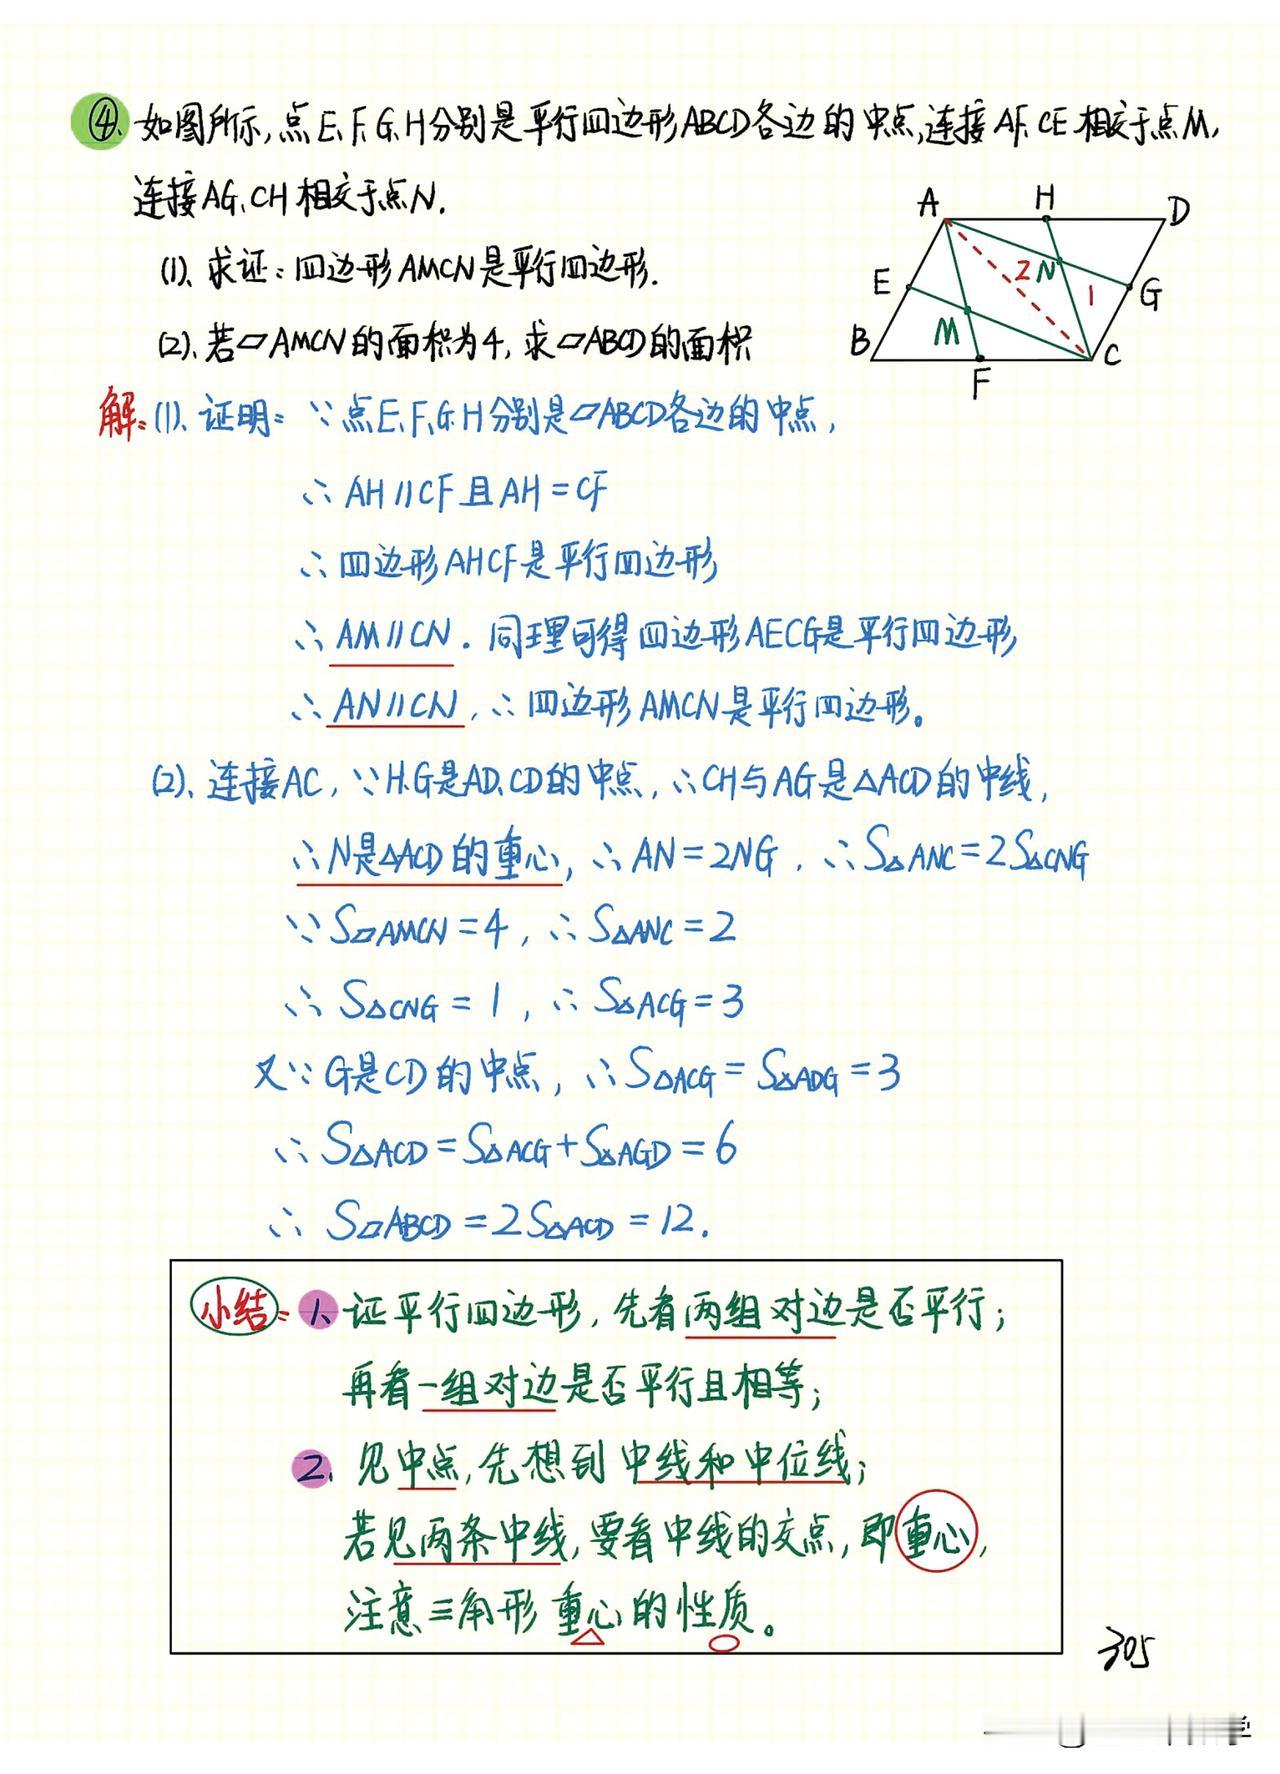 ④、如图所示,点E、F、G、H分别是平行四边形ABCD各边的中点,连接AF、CE相交于点M,
连接AG、CH相交于点N.
(1)、求证:四边形AMCN是平行四边形.
(2)、若▱AMCN的面积为4,求▱ABCD的面积
A H D
E 2 N 1 G
M
B F C
解:(1)、证明:∵点E、F、G、H分别是▱ABCD各边的中点,
∴AH∥CF且AH=CF
∴四边形AHCF是平行四边形
∴AM∥CN.同理可得四边形AECG是平行四边形
∴AN∥CN,∴四边形AMCN是平行四边形。
(2)、连接AC,∵H、G是AD、CD的中点,∴CH与AG是△ACD的中线,
∴N是△ACD的重心,∴AN=2NG,∴S△ANC=2S△CNG
∵S▱AMCN=4,∴S△ANC=2
∴S△CNG=1,∴S△ACG=3
又∵G是CD的中点,∴S△ACG=S△ADG=3
∴S△ACD=S△ACG+S△AGD=6
∴S▱ABCD=2S△ACD=12.
小结:1、证平行四边形,先看两组对边是否平行;
再看一组对边是否平行且相等;
2、见中点,先想到中线和中位线;
若见两条中线,要看中线的交点,即重心,
注意三角形重心的性质。
305